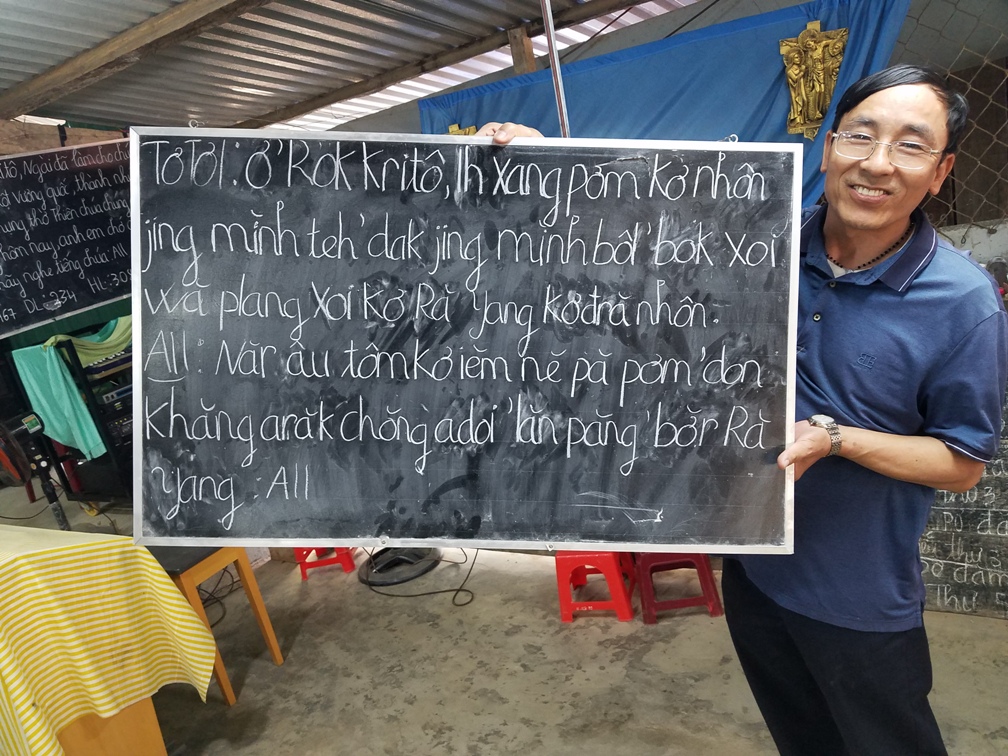 Tơ Tơl: Ơ 'Rok Kritô, Ih xang pơm kơ nhôn
jing mĭnh teh 'dak jing mĭnh bôl 'bok xoi
wă plang xoi kơ Ră Yang kơ đră nhôn.
All: Năr âu tôm kơ iĕm nĕ pă pơm 'don
khăng arăk chŏng adoi 'lăn păng 'bŏr Ră
Yang : All
Ngài đã làm cho chú
vương quốc, thành nh
thờ Thiên chúa chúng
hôm nay, anh em chớ c
hãy nghe tiếng chúa All
167 DL: 234 HL: 308